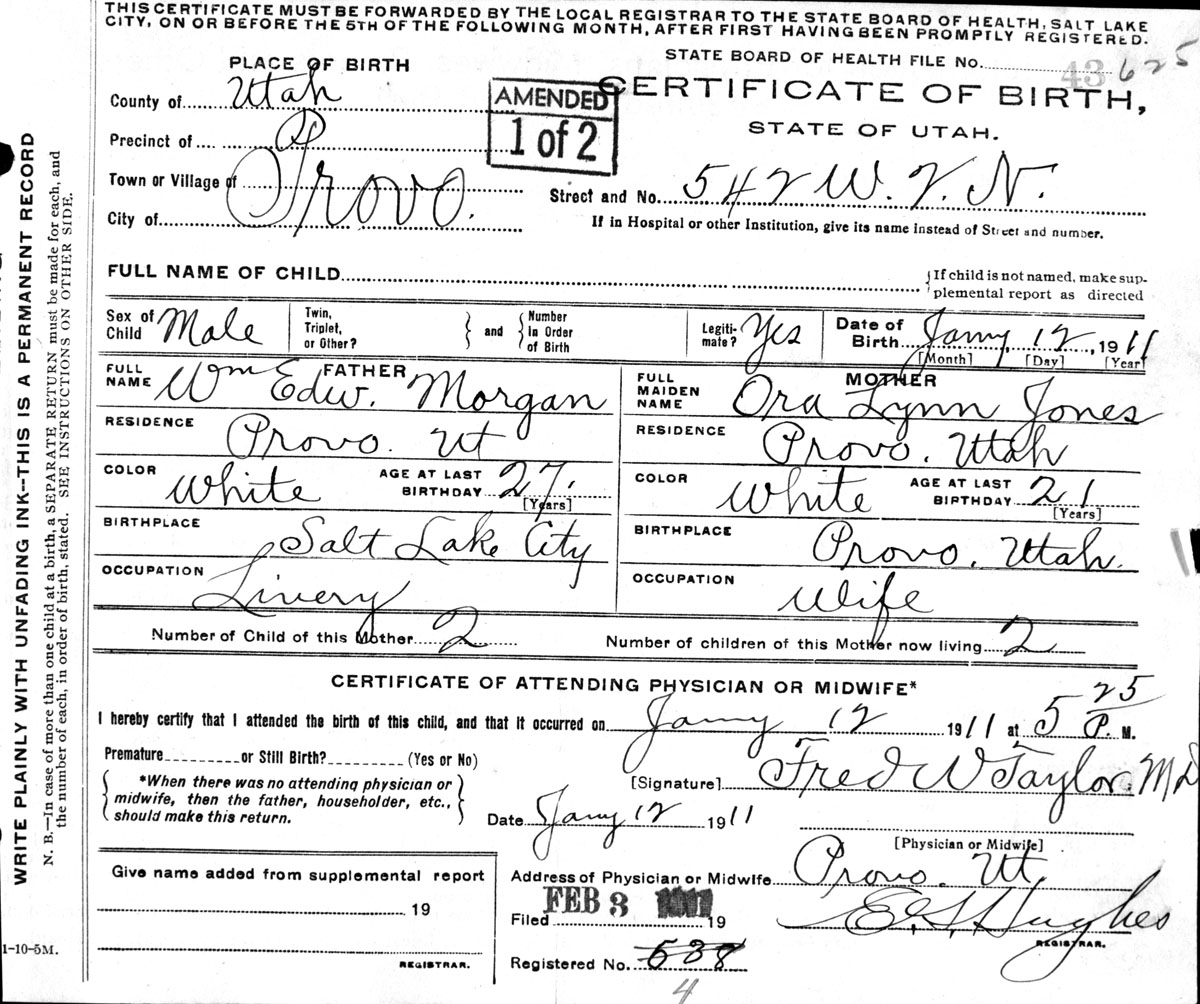 THIS CERTIFICATE MUST BE FORWARDED BY THE LOCAL REGISTRAR TO THE STATE BOARD OF HEALTH, SALT LAKE
CITY, ON OR BEFORE THE 5TH OF THE FOLLOWING MONTH, AFTER FIRST HAVING BEEN PROMPTLY REGISTERED.
STATE BOARD OF HEALTH FILE NO. 43 625
PLACE OF BIRTH
CERTIFICATE OF BIRTH,
STATE OF UTAH.
AMENDED
1 of 2
County of Utah
Precinct of
Town or Village of
City of Provo.
Street and No. 542 W. 7. N.
If in Hospital or other Institution, give its name instead of Street and number.
FULL NAME OF CHILD
If child is not named, make sup-
plemental report as directed
Sex of Child Male
Twin, Triplet, or Other?
and
Number in Order of Birth
Legiti-mate? Yes
Date of Birth Jany 12, 1911
[Month] [Day] [Year]
FATHER
FULL NAME Wm Edw. Morgan
MOTHER
FULL MAIDEN NAME Ora Lynn Jones
RESIDENCE Provo. Ut
RESIDENCE Provo. Utah
COLOR White AGE AT LAST BIRTHDAY 27. [Years]
COLOR White AGE AT LAST BIRTHDAY 21 [Years]
BIRTHPLACE Salt Lake City
BIRTHPLACE Provo. Utah.
OCCUPATION Livery
OCCUPATION Wife
Number of Child of this Mother 2
Number of children of this Mother now living 2
CERTIFICATE OF ATTENDING PHYSICIAN OR MIDWIFE*
I hereby certify that I attended the birth of this child, and that it occurred on Jany 12 1911 at 5 25 P. M.
Premature or Still Birth? (Yes or No)
*When there was no attending physician or
midwife, then the father, householder, etc.,
should make this return.
[Signature] Fred W Taylor. M D
Date Jany 12 1911
[Physician or Midwife]
Give name added from supplemental report
19
REGISTRAR.
Address of Physician or Midwife Provo. Ut.
Filed FEB 3 1911 19
Hughes
REGISTRAR.
Registered No. 538
4
WRITE PLAINLY WITH UNFADING INK--THIS IS A PERMANENT RECORD
N. B.—In case of more than one child at a birth, a SEPARATE RETURN must be made for each, and
the number of each, in order of birth, stated. SEE INSTRUCTIONS ON OTHER SIDE.
1-10-5M.